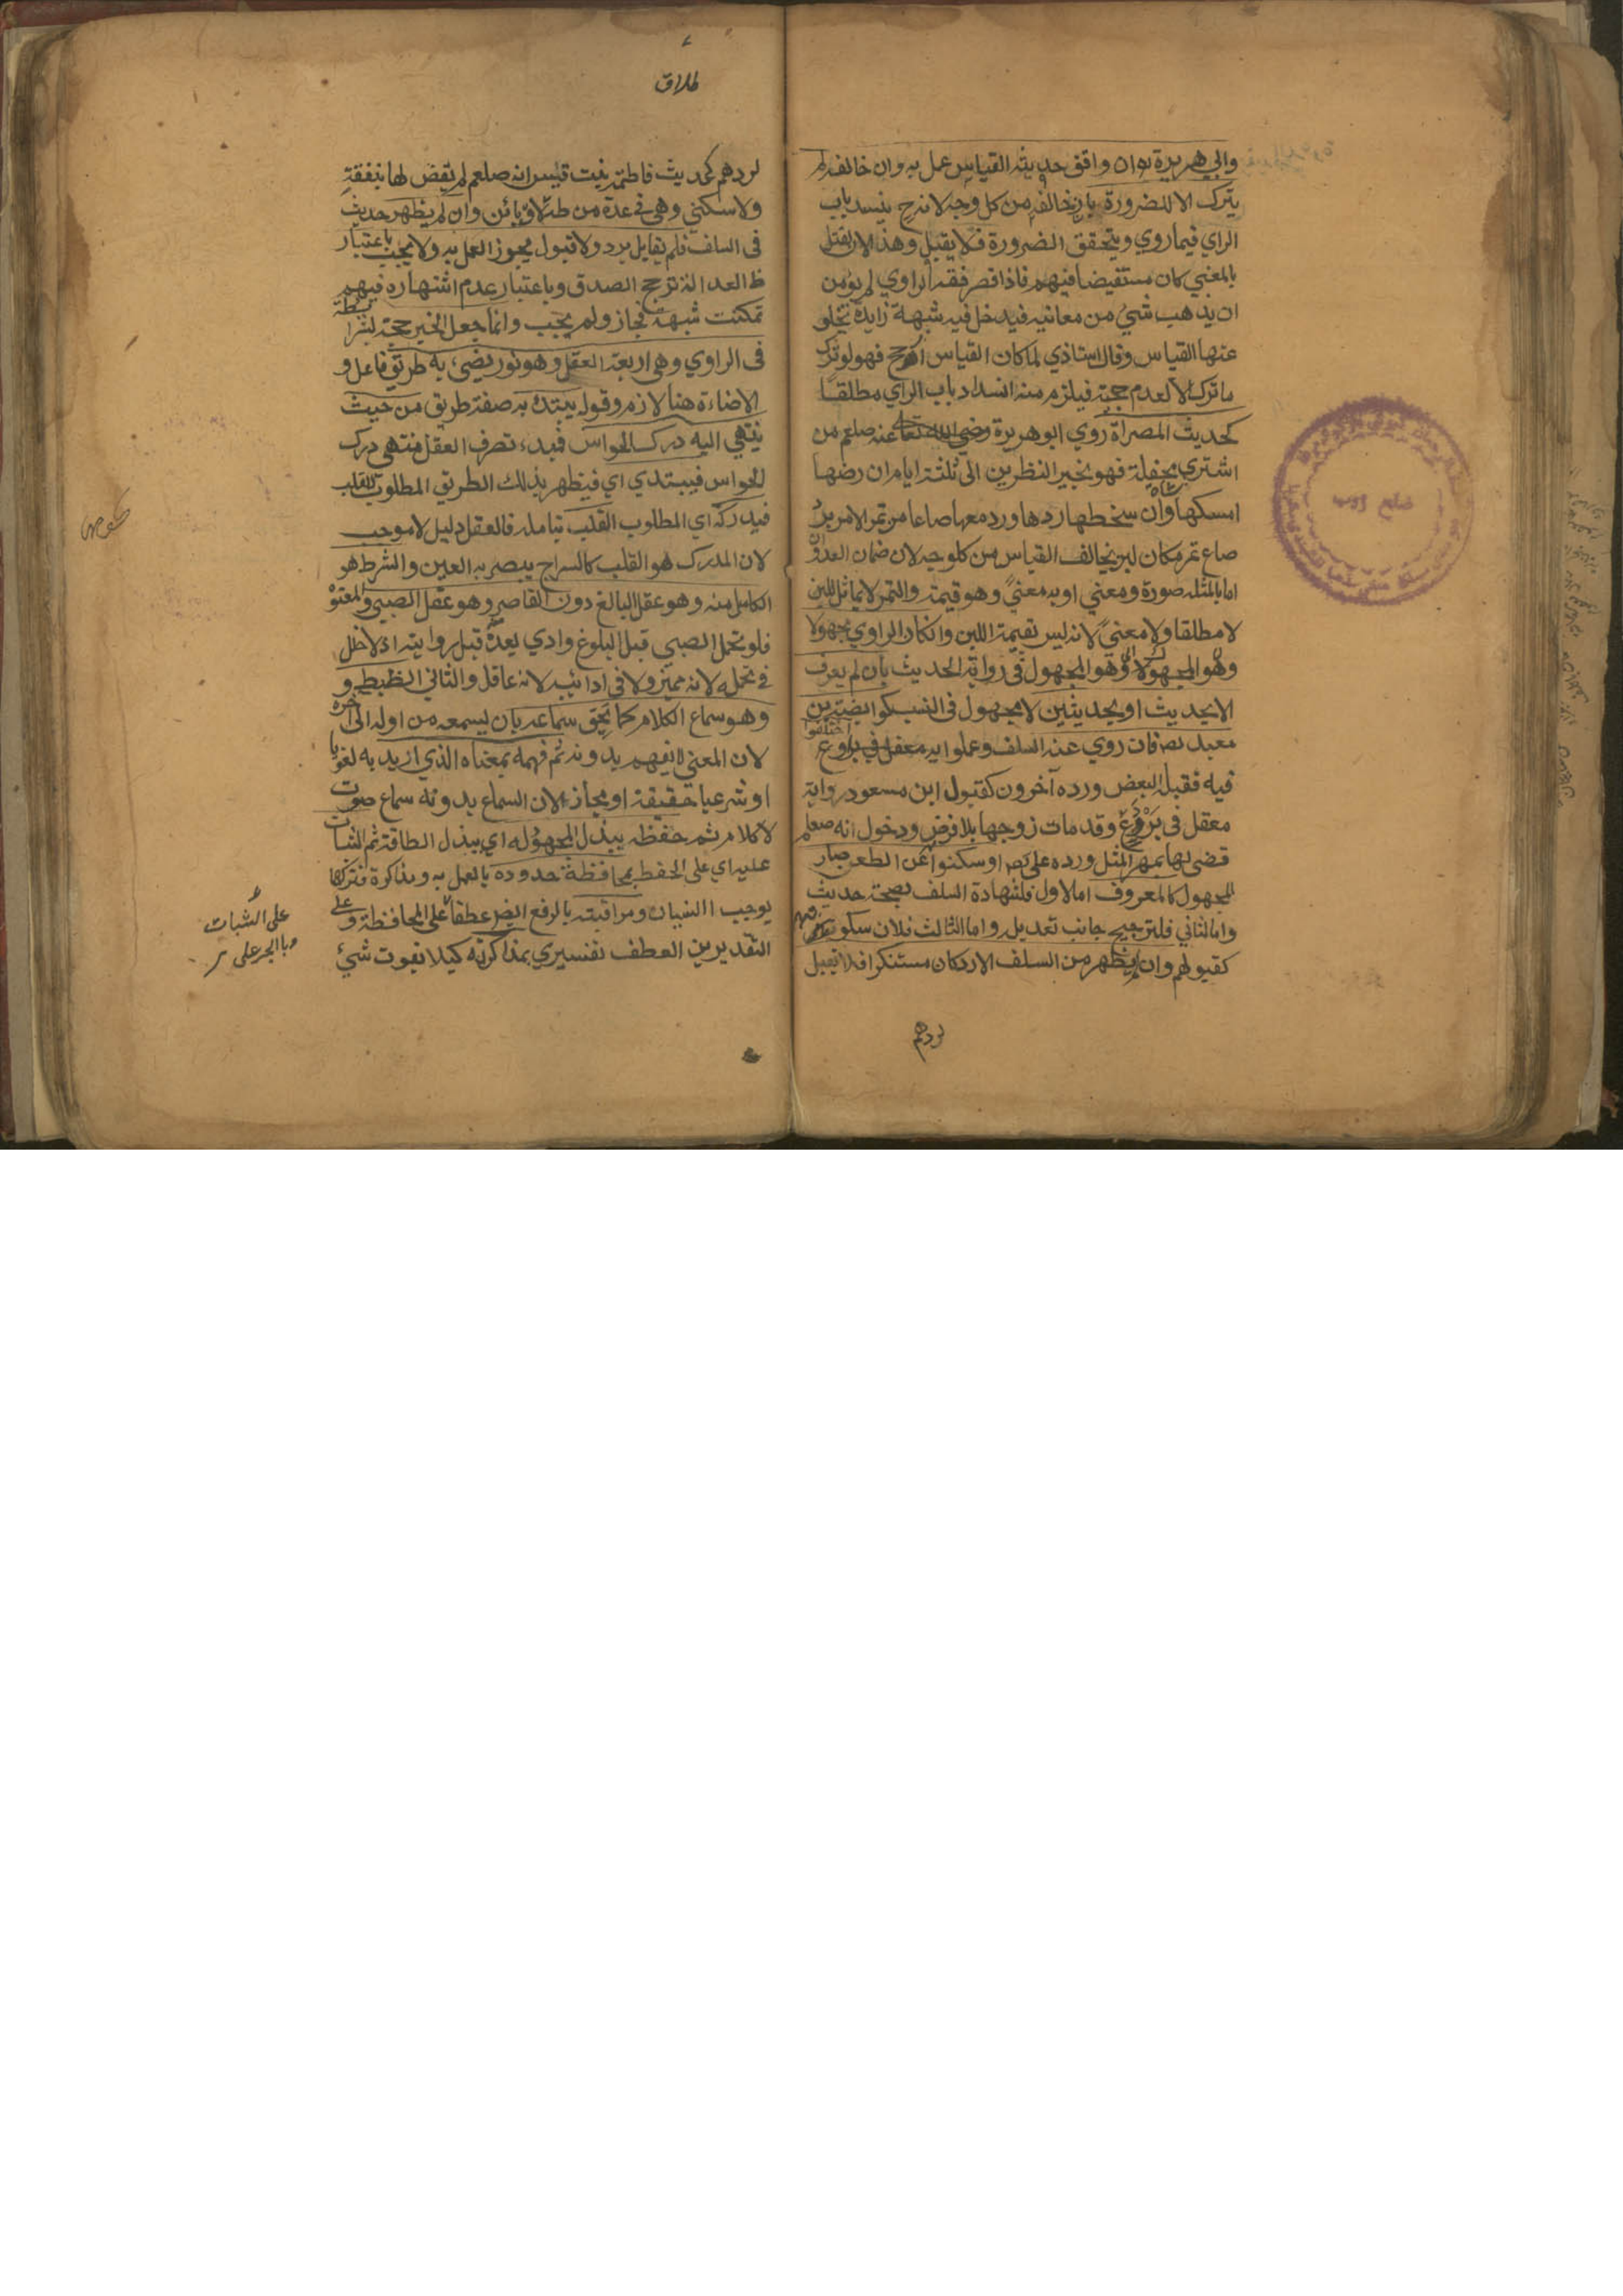 وابي هريرة ره ان وافق حديثه القياس عمل به وان خالفه لم
يترك الا للضرورة بان خالفه من كل وجه لانه ح ينسد باب
الراي فيما روي ويتحقق الضرورة فلا يقبل وهذا لان النقل
بالمعني كان مستفيضا فيهم فاذا قصر فقه الراوي لم يؤمن
ان يذهب شيئ من معانيه فيدخل فيه شبهة زايدة تخلو
عنها القياس وقال استاذي لما كان القياس ارجح فهو لو ترك
ما ترك الا لعدم حجة فيلزم منه انسداد باب الراي مطلقا
كحديث المصراة روي ابو هريرة رضي الله تعا عنه صلعم من
اشتري شاة محفلة فهو بخير النظرين الى ثلثة ايام ان رضها
امسكها وان سخطها ردها ورد معها صاعا من تمر الامر برد
صاع تمر مكان لبن يخالف القياس من كل وجه لان ضمان العدوان
اما بالمثل صورة ومعني او به معنيً وهو قيمة والتمر لا يماثل اللبن
لا مطلقا ولا معنيً لانه ليس بقيمة اللبن وان كان الراوي مجهولا
وهو المجهول في رواية الحديث بان لم يعرف
الا بحديث او بحديثين لا مجهول في النسب كوابصة بن
معبد ره فان روي عنه السلف وعملوا به او اختلفوا
فيه فقبله البعض ورده آخرون كقبول ابن مسعود رواية
معقل في بروع وقد مات زوجها بلا فرض ودخول انه صعلم
قضي لها بمهر المثل ورده علي ره او سكتوا عن الطعن صار
المجهول كالمعروف اما الاول فلشهادة السلف بصحة حديث
واما الثاني فلترجيح جانب تعديل واما الثالث فلان سكوتهم
كقبولهم وان لم يظهر من السلف الا رد كان مستنكرا فلا تقبل
لردهم
طلاق
لردهم كحديث فاطمة بنت قيس انه صلعم لم يقض لها بنفقة
ولا سكني وهي في عدة من طلاق بائن وان لم يظهر حديث
في السلف فلم يقابل برد ولا قبول يجوز العمل به ولا يجب باعتبار
ظ العدالة ترجح الصدق وباعتبار عدم اشتهاره فيهم
تمكنت شبهة فجاز ولم يجب وانما جعل الخبر حجة بشرايطه
في الراوي وهي اربعة العقل وهو نور يضيء به طريق فاعل و
الاضاءة هنا لازم وقوله يبتدئ به صفة طريق من حيث
ينتهي اليه درك الحواس فبدء تصرف العقل منتهي درك
الحواس فيبتدي اي فيظهر بذلك الطريق المطلوب للقلب
فيدركه اي المطلوب القلب بتامله فالعقل دليل لا موجب
لان المدرك هو القلب كالسراج يبصر به العين والشرط هو
الكامل منه وهو عقل البالغ دون القاصر وهو عقل الصبي والمعتوه
فلو تحمل الصبي قبل البلوغ وادي بعده قبل روايته اذ لا خلل
في تحمله لانه مميز ولا في ادائه لانه عاقل والثاني الضبط و
وهو سماع الكلام كما يحق سماعه بان يسمعه من اوله الى آخره
لان المعني لا يفهم بدونه ثم فهمه بمعناه الذي اريد به لغويا
او شرعيا حقيقة او مجازا لان السماع بدونه سماع صوت
لا كلام ثم حفظه ببذل المجهود له اي ببذل الطاقة ثم الثبات
عليه اي على الحفظ بمحافظة حدوده بالعمل به ومذاكرة فتركها
يوجب النسيان ومراقبته بالرفع ايض عطفا على المحافظة وعلي
التقديرين العطف تفسيري بمذاكرته كيلا يفوت شيئ
على الثبات
وبالجر على
ضلع